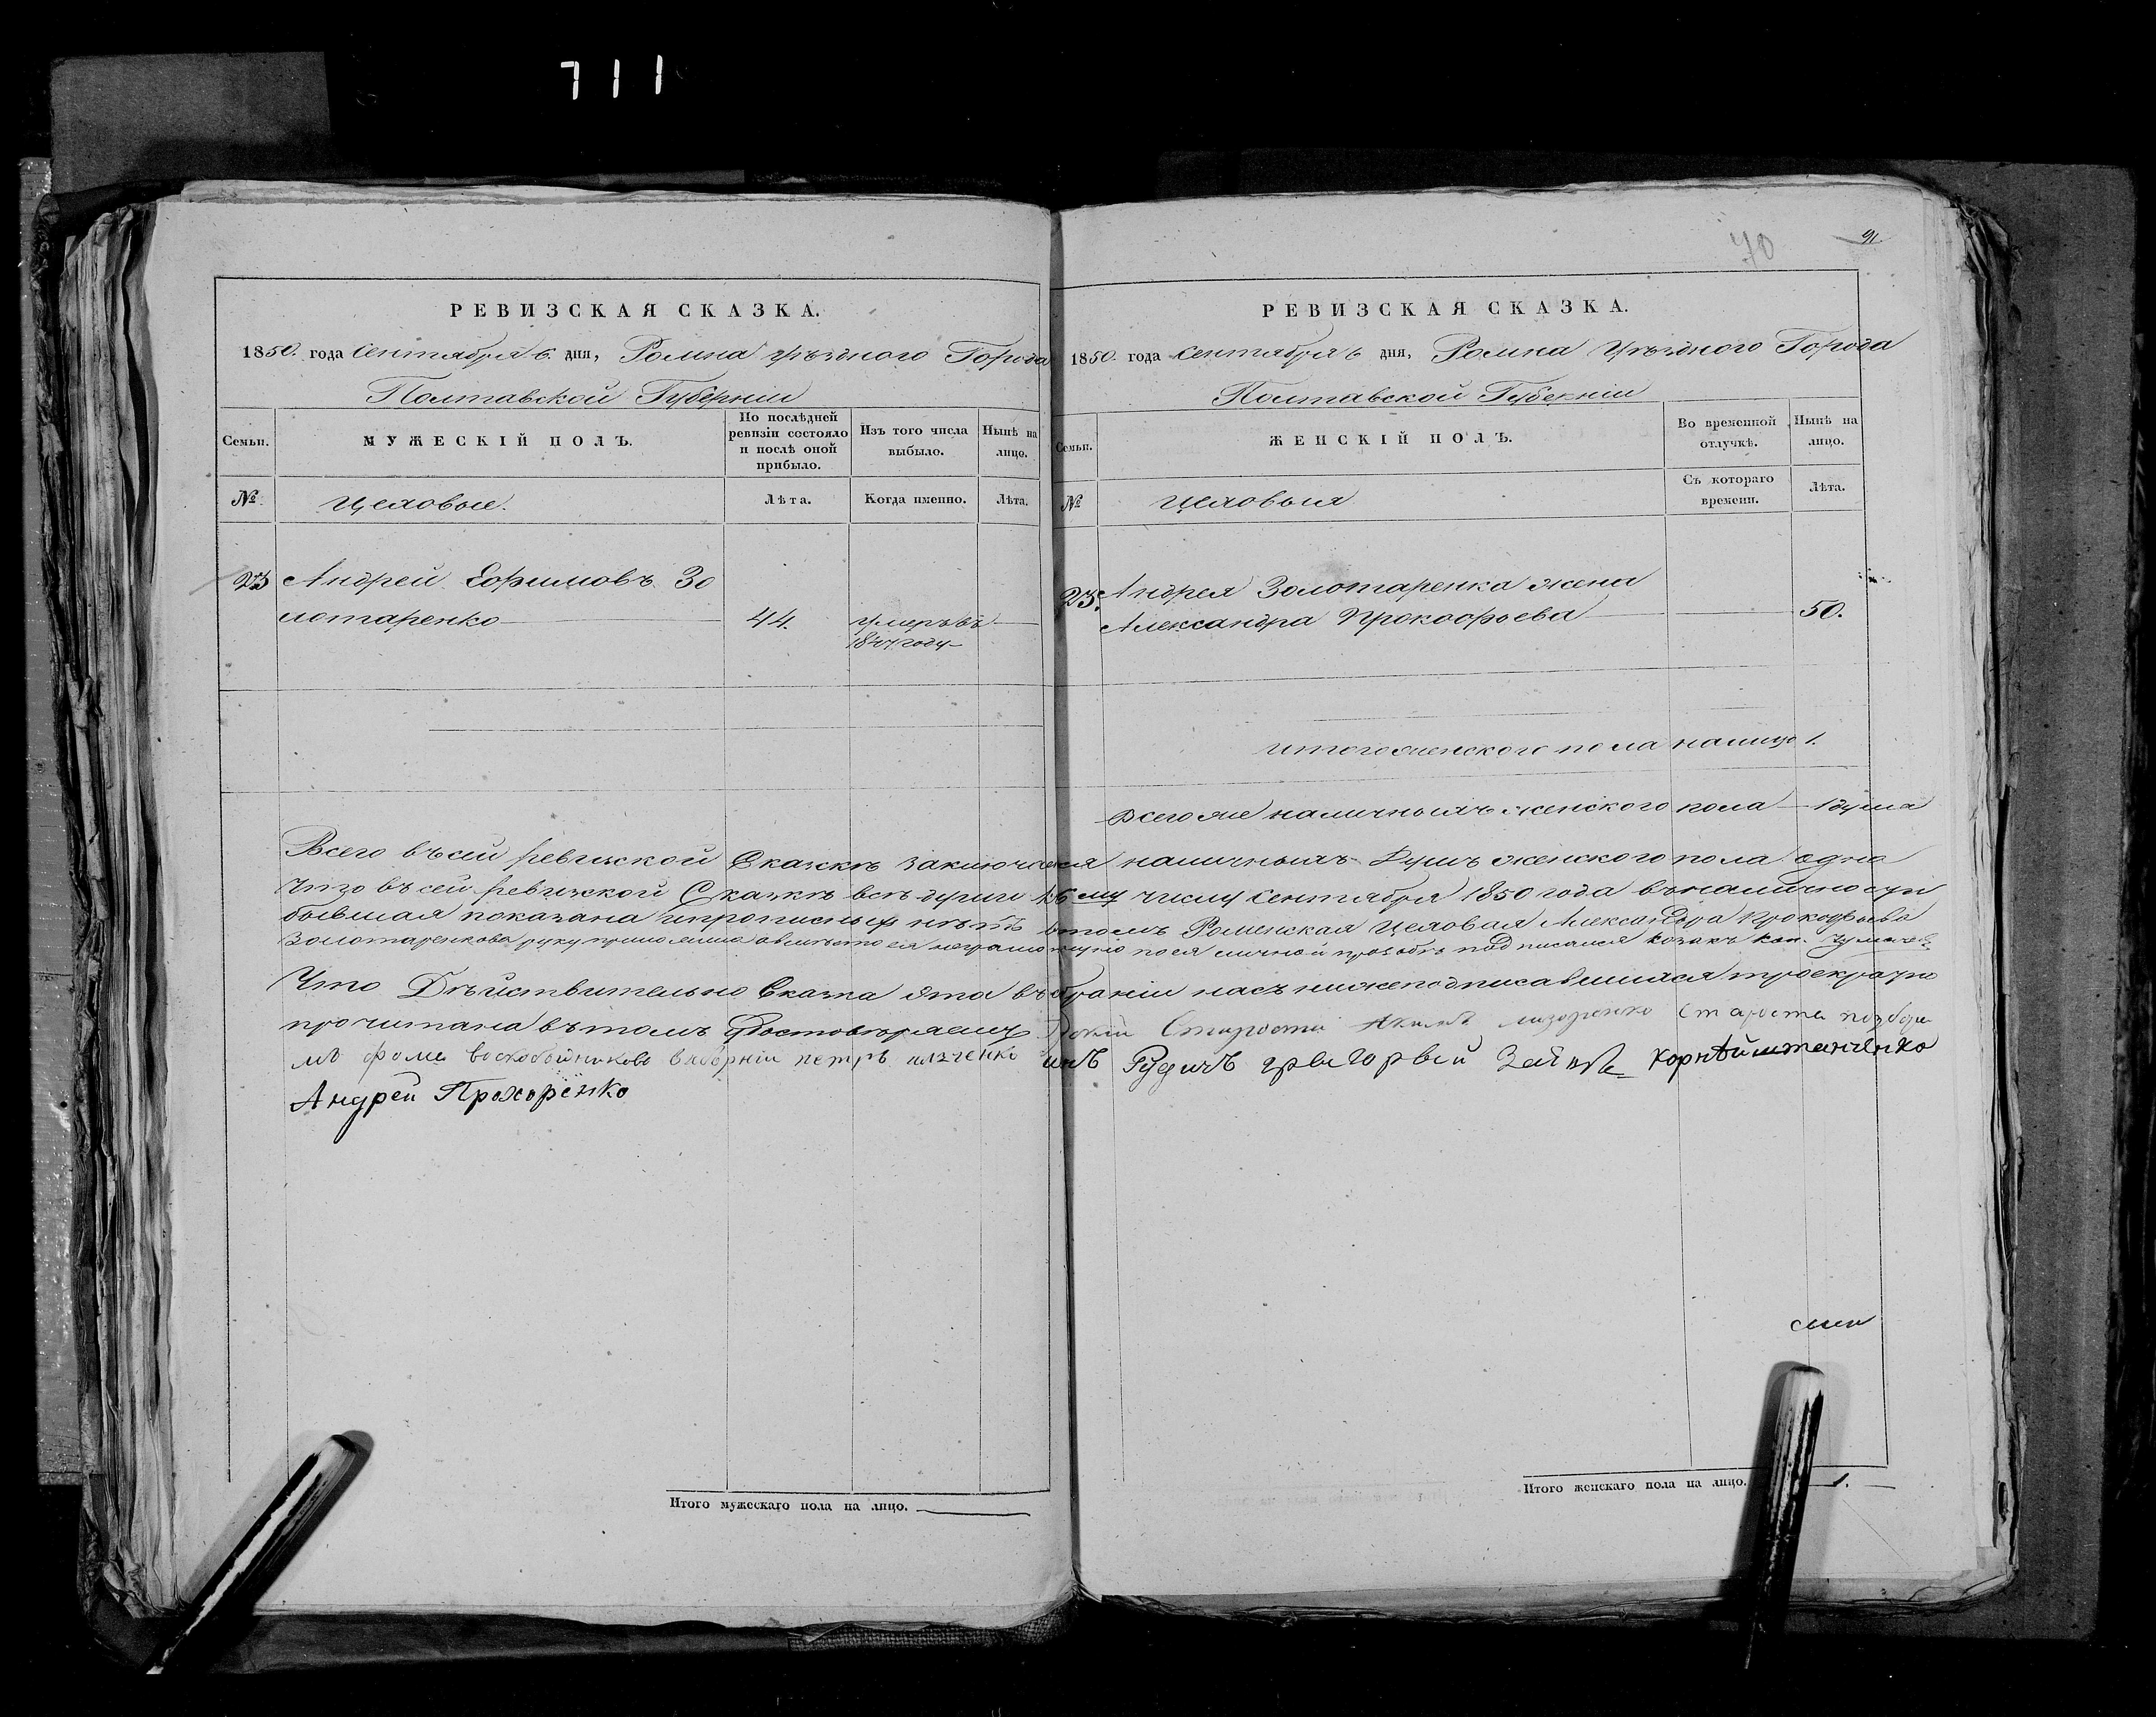 711
РЕВИЗСКАЯ СКАЗКА.
1850. года Сентября 6. дня, Ромна уѣзднаго Города
Полтавской Губерніи
Семьи.
МУЖЕСКІЙ ПОЛЪ.
По послѣдней ревизіи состояло и послѣ оной прибыло.
Изъ того числа выбыло.
Нынѣ на лицо.
№
Цеховые.
Лѣта.
Когда именно.
Лѣта.
23 Андрей Ефимовъ Зо
лотаренко 44. умеръ въ
1847 году
Итого мужескаго пола на лицо.
70
91
РЕВИЗСКАЯ СКАЗКА.
1850. года Сентября 6 дня, Ромна Уѣзднаго Города
Полтавской Губерніи
Семьи.
ЖЕНСКІЙ ПОЛЪ.
Во временной отлучкѣ.
Нынѣ на лицо.
№
Цеховыя
Съ котораго времени.
Лѣта.
23. Андрея Золотаренка жена
Александра Прокофьева 50.
итого женского пола налицо 1.
Всего же наличныхъ женского пола 1 душа
Всего въ сей ревизской Сказкѣ заключается наличныхъ душъ женского пола одна
Что въ сей ревизской Сказкѣ всѣ души к 6му числу Сентября 1850 года въ наличности
бывшая показана и прописныхъ нѣтъ въ томъ Роменская Цеховая Александра Прокофьева
Золотаренкова руку приложила а вместо ея неграмотную по ея личной прозьбѣ подписался козакъ
Что Дѣйствительно Сказка эта въ собраніи насъ нижеподписавшихся троекратно
прочитана въ томъ удостовѣряемъ Староста Староста
Фома Воскобойниковъ выборніи Петръ Рудичъ Григорвей Заяцъ Корнѣй
Андрей Прохоренко
Итого женскаго пола на лицо. 1.